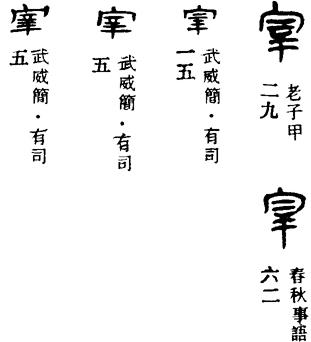 宰
老子甲
二九
宰
春秋事語
六二
宰
武威簡·有司
一五
宰
武威簡·有司
五
宰
武威簡·有司
五